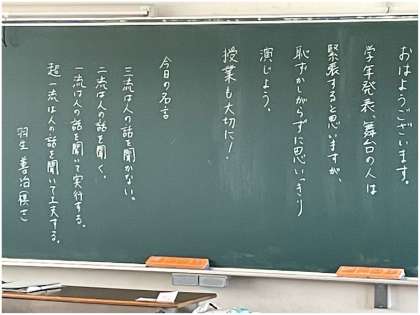 おはようございます。
学年発表、舞台の人は
緊張すると思いますが、
恥ずかしがらずに思いっきり
演じよう。
授業も大切に！
今日の名言
三流は人の話を聞かない。
二流は人の話を聞く。
一流は人の話を聞いて実行する。
超一流は人の話を聞いて工夫する。
羽生善治